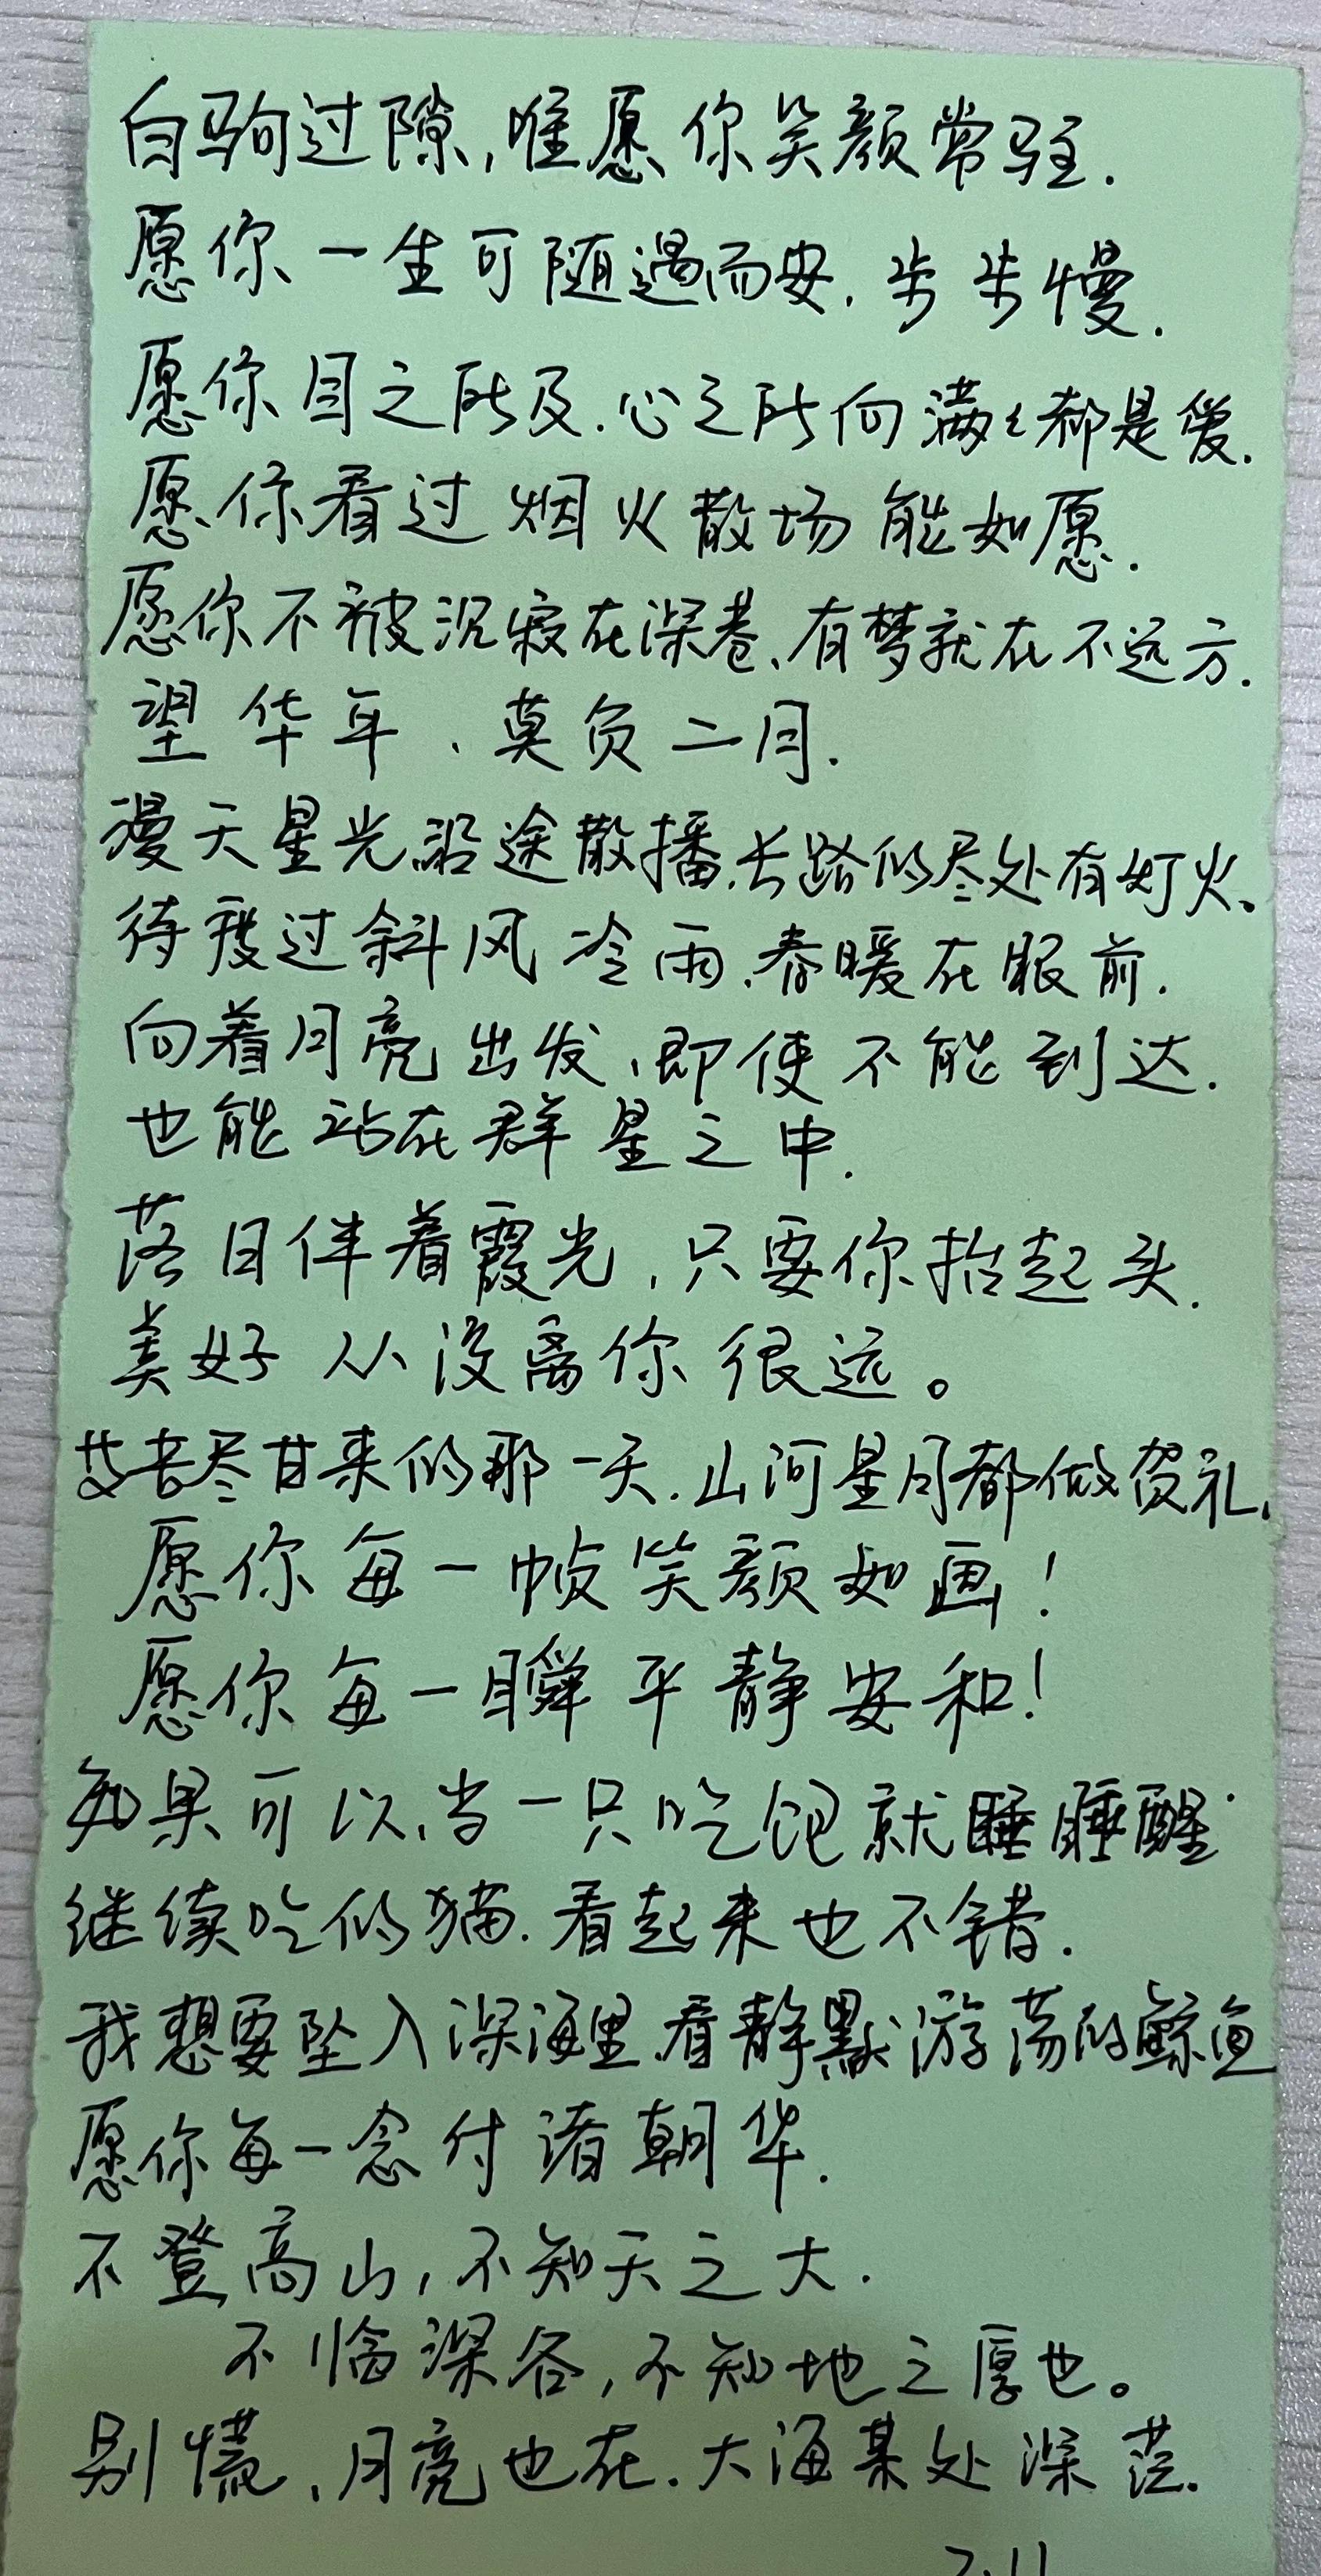 白驹过隙,唯愿你笑颜常驻.
愿你一生可随遇而安,步步慢.
愿你目之所及.心之所向满々都是爱.
愿你看过烟火散场能如愿.
愿你不被沉寂在深巷、有梦就在不远方.
望华年、莫负二月.
漫天星光沿途散播,长路的尽处有灯火、
待我过斜风冷雨、春暖在眼前.
向着月亮出发、即使不能到达.
也能站在群星之中.
落日伴着霞光,只要你抬起头.
美好从没离你很远。
艾苦尽甘来的那一天.山河星月都做贺礼,
愿你每一帧笑颜如画!
愿你每一瞬平静安和!
如果可以、当一只吃饱就睡睡醒
继续吃的猫.看起来也不错.
我想要坠入深海里、看静默游荡的鲸鱼
愿你每一念付诸朝华.
不登高山,不知天之大.
不临深谷,不知地之厚也。
别慌、月亮也在.大海某处深茫.
2.11